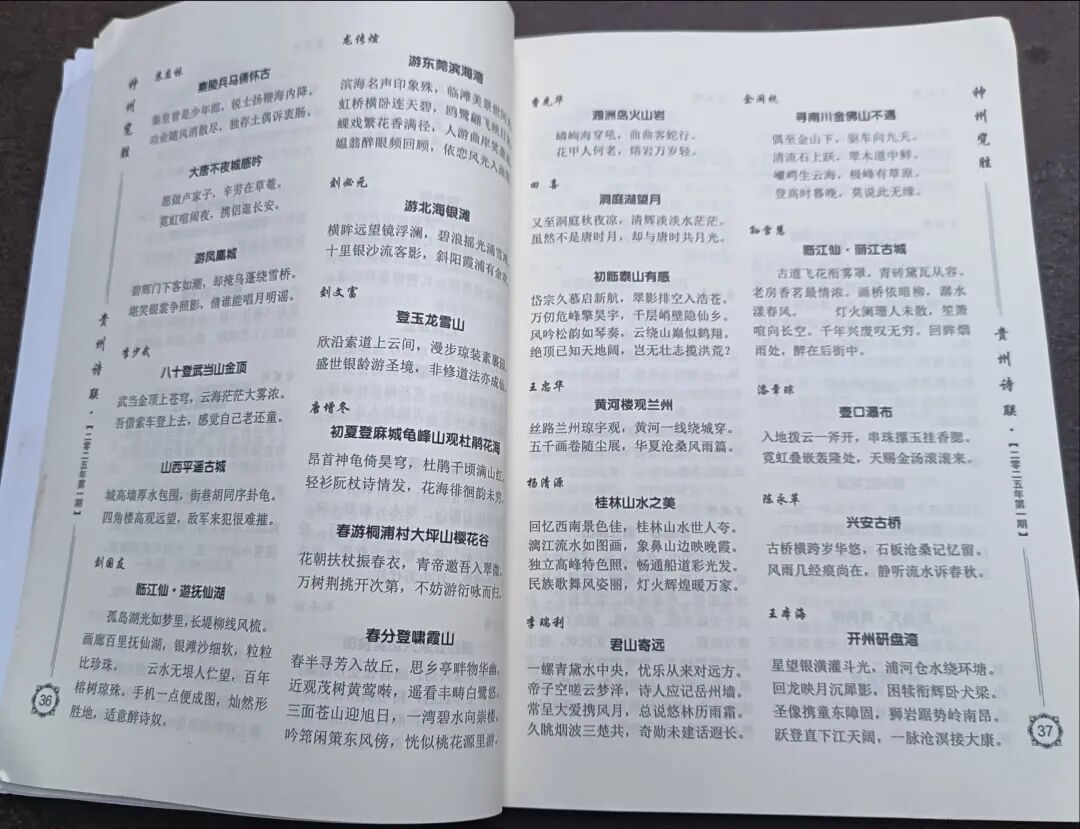 神州览胜
秦陵兵马俑怀古
秦皇曾是少年郎，锐士扬鞭海内降。
功业随风消散尽，独存土偶诉衷肠。
大唐不夜城感吟
愿做卢家子，辛劳在草菴。
霓虹喧闹夜，携侣逛长安。
游凤凰城
碧辉门下客如潮，却掩乌蓬绕雪桥。
堪笑银裳争照影，倩谁能唱月明谣。
李少武
八十登武当山金顶
武当金顶上苍穹，云海茫茫大雾浓。
吾借索车登上去，感觉自己老还童。
山西平遥古城
城高墙厚水包围，街巷胡同序卦龟。
四角楼高观远望，敌军来犯很难摧。
刘国友
临江仙·遊抚仙湖
孤岛湖光如梦里，长堤柳线风梳。
画廊百里抚仙湖，银滩沙细软，粒粒
比珍珠。 云水无垠人伫望，百年
榕树琼珠。手机一点便成图，灿然形
胜地，适意醉诗奴。
龙传煊
游东莞滨海湾
滨海名声印象殊，临滩美景世
虹桥横卧连天碧，鸥鹭翩飞映日
蝶戏繁花香满径，人游曲岸笑
媪翁醉眼频回顾，依恋风光入画
刘必元
游北海银滩
横眸远望镜浮澜，碧浪摇光涌雪
十里银沙流客影，斜阳霞浦有余
刘文富
登玉龙雪山
欣沿索道上云间，漫步琼装素裹
盛世银龄游圣境，非修道法亦成仙
唐增冬
初夏登麻城龟峰山观杜鹃花海
昂首神龟倚昊穹，杜鹃千顷满山红
轻衫阮杖诗情发，花海徘徊韵未穷
春游桐浦村大坪山樱花谷
花朝扶杖振春衣，青帝邀吾入翠微
万树荆挑开次第，不妨游衍咏而归
春分登啸霞山
春半寻芳入故丘，思乡亭畔物华幽
近观茂树黄莺啭，遥看丰畴白鹭悠
三面苍山迎旭日，一湾碧水向崇楼
吟筇闲策东风傍，恍似桃花源里游
贵州诗联·【二零二五年第一期】
36
曹先华
涠洲岛火山岩
嶙峋海穿吼，曲曲客蛇行。
花甲人何老，熔岩万岁轻。
田喜
洞庭湖望月
又至洞庭秋夜凉，清辉淡淡水茫茫。
虽然不是唐时月，却与唐时共月光。
初临泰山有感
岱宗久慕启新航，翠影排空入浩苍。
万仞危峰擎昊宇，千层峭壁隐仙乡。
风吟松韵如琴奏，云绕山巅似鹤翔。
绝顶已知天地阔，岂无壮志揽洪荒？
王忠华
黄河楼观兰州
丝路兰州琼宇观，黄河一线绕城穿。
五千画卷随尘展，华夏沧桑风雨篇。
杨清源
桂林山水之美
回忆西南景色佳，桂林山水世人夸。
漓江流水如图画，象鼻山边映晚霞。
独立高峰特色照，畅通船道彩光发。
民族歌舞风姿丽，灯火辉煌暖万家。
李瑞利
君山寄远
一螺青黛水中央，忧乐从来对远方。
帝子空嗟云梦泽，诗人应记岳州墙。
常呈大爱携风月，总说悠林历雨霜。
久眺烟波三楚共，奇勋未建话遐长。
金闻祝
寻南川金佛山不遇
偶至金山下，驱车向九天。
清流石上跃，翠木道中鲜。
蠼鸡生云海，极峰有草原。
登高时暮晚，莫说此无缘。
孙雪慧
临江仙·丽江古城
古道飞花衔雾罩，青砖黛瓦从容。
老房香茗最情浓。画桥依暗柳，潺水
漾春风。 灯火阑珊人未散，笙箫
喧向长空。千年兴废叹无穷。回眸烟
雨处，醉在后街中。
潘章琼
壶口瀑布
入地拨云一斧开，串珠摞玉挂香腮。
霓虹叠嵌轰隆处，天赐金汤滚滚来。
陈永革
兴安古桥
古桥横跨岁华悠，石板沧桑记忆留。
风雨几经痕尚在，静听流水诉春秋。
王本海
开州研盘湾
星望银潢灌斗光，浦河仓水绕环塘。
回龙映月沉犀影，困犊衔辉卧犬梁。
圣像携童东障固，狮岩踞势岭南昂。
跃登直下江天阔，一脉沧溟接大康。
神州览胜
贵州诗联·【二零二五年第一期】
37